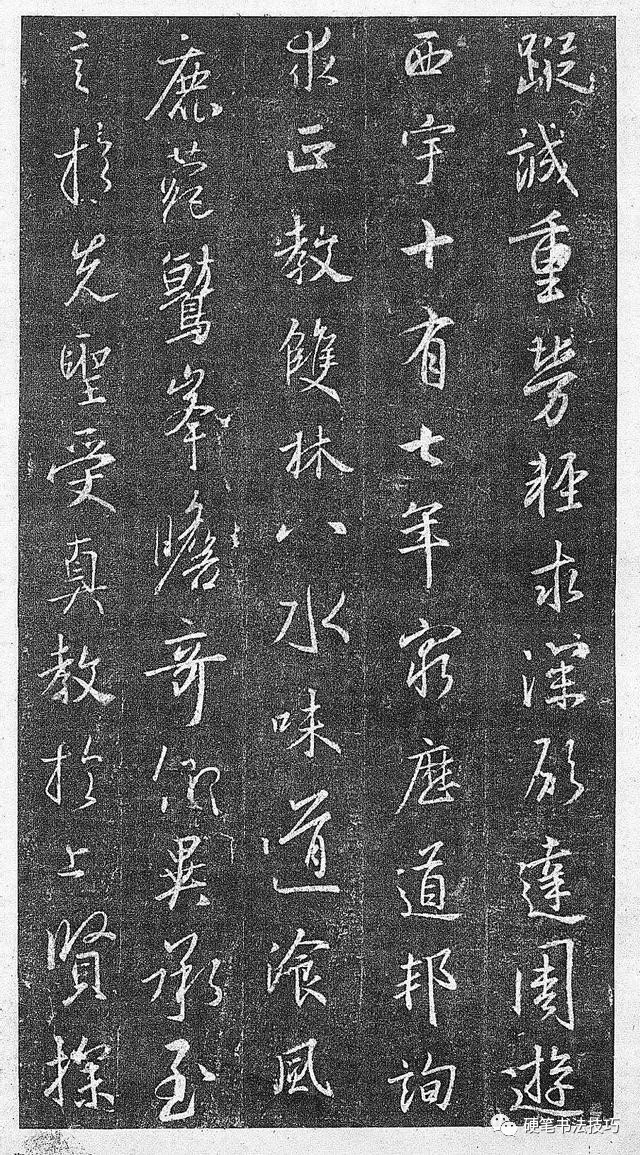 蹤誠重勞輕求深願達周遊
西宇十有七年窮歷道邦詢
求正教雙林八水味道飡風
鹿菀鷲峯瞻奇仰異承至
言於先聖受真教於上賢探
硬笔书法技巧